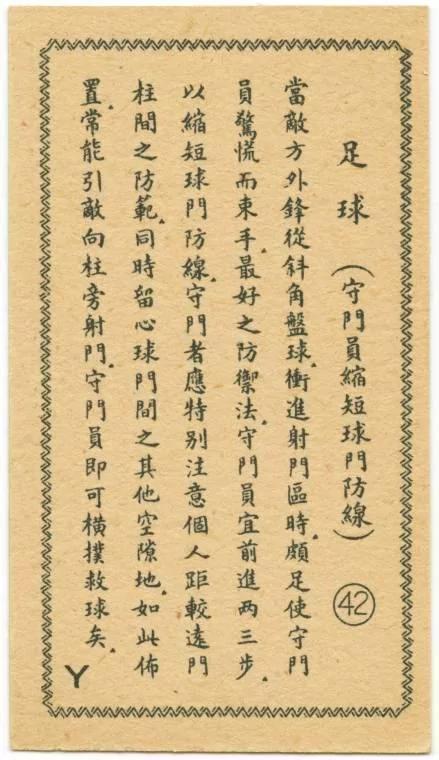 足球（守門員縮短球門防線）㊷
當敵方外鋒從斜角盤球，衝進射門區時，頗足使守門
員驚慌而束手，最好之防禦法，守門員宜前進兩三步，
以縮短球門防線，守門者應特別注意個人距較遠門
柱間之防範，同時留心球門間之其他空隙地，如此佈
置，常能引敵向柱旁射門，守門員即可橫撲救球矣，
Y